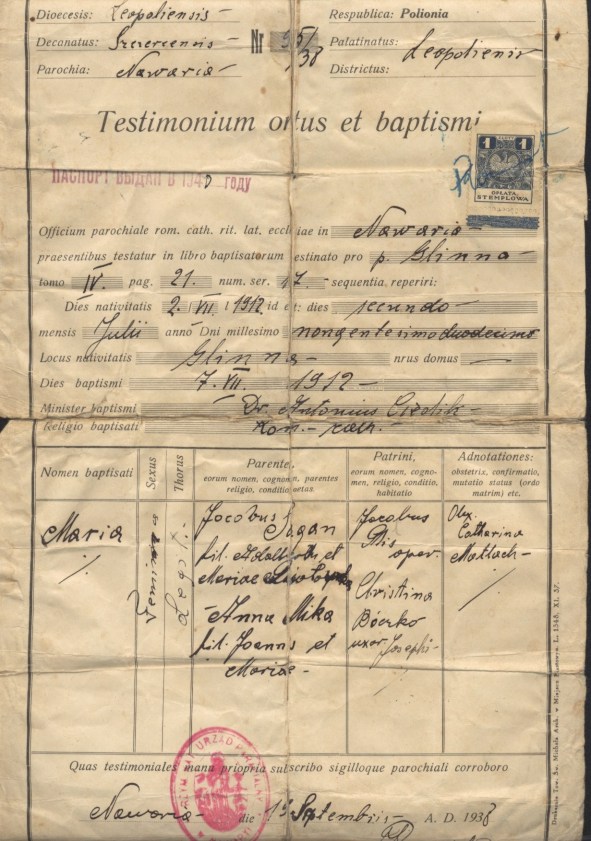 Dioecesis: Leopoliensis
Respublica: Polonia
Decanatus: Szczercensis
Nr 35/38
Palatinatus: Leopoliensis
Parochia: Nawaria
Districtus:
Testimonium ortus et baptismi
1 ZŁOTY 1
OPŁATA
STEMPLOWA
ПАСПОРТ ВЫДАН В 1940 ГОДУ
Officium parochiale rom. cath. rit. lat. ecclesiae in Nawaria
praesentibus testatur in libro baptisatorum destinato pro p. Glinna
tomo IV. pag. 21. num. ser. 17 sequentia reperiri:
Dies nativitatis 2. VII 1912 id est: dies secundo
mensis Julii anno Dni millesimo nongentesimo duodecimo
Locus nativitatis Glinna nrus domus —
Dies baptismi 7. VII. 1912
Minister baptismi Dr. Antonius
Religio baptisati Rom. cath.
Nomen baptisati
Sexus
Thorus
Parentes,
eorum nomen, cognomen, parentes
religio, conditio, aetas
Patrini,
eorum nomen, cognomen, religio, conditio,
habitatio
Adnotationes:
obstetrix, confirmatio,
mutatio status (ordo
matrim) etc.
Maria
Femin.
Legit.
Jacobus Sagan
fil. Adalberti et
Mariae
Anna Mika
fil. Joannis et
Mariae
Jacobus
oper.
Christina
Boczko
uxor Josephi
Obx.
Catharina
Mattach
Quas testimoniales manu propria subscribo sigilloque parochiali corroboro
Nawaria die 1 Septembris A. D. 1938